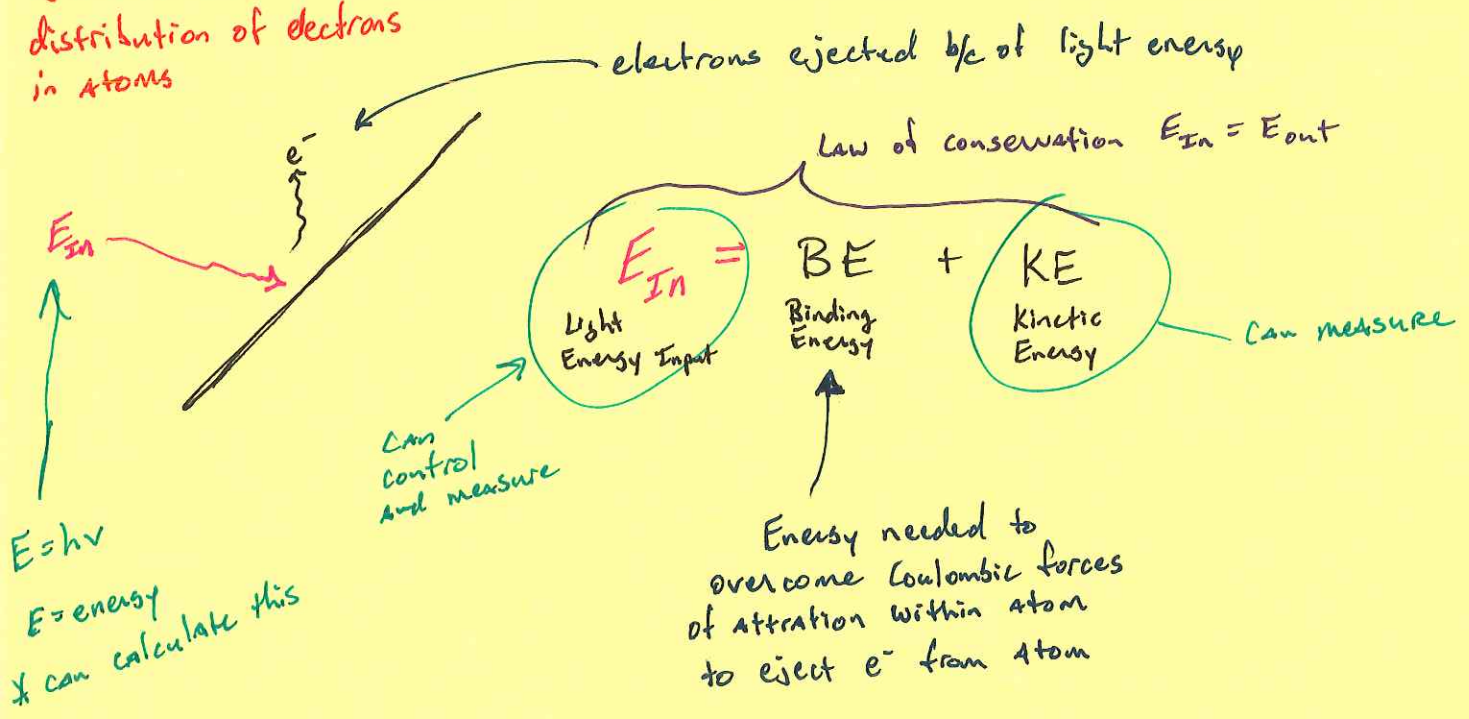 distribution of electrons
in Atoms
electrons ejected b/c of light energy
e⁻
Law of conservation E_In = E_out
E_In
E_In = BE + KE
Light
Energy Input
Binding
Energy
Kinetic
Energy
Can measure
Can
control
and measure
E = hν
E = energy
* can calculate this
Energy needed to
overcome Coulombic forces
of attration within Atom
to eject e⁻ from Atom